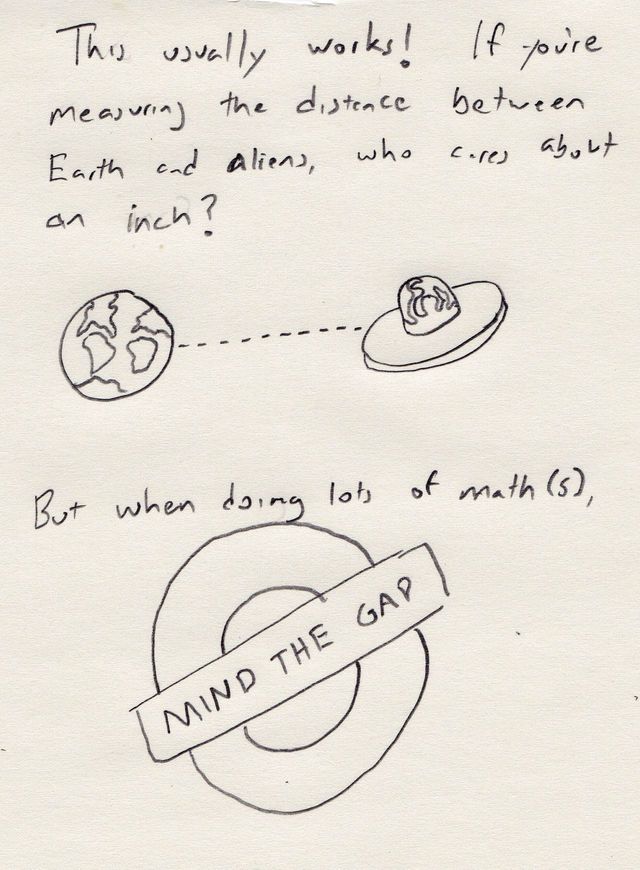 This usually works! If you're
measuring the distance between
Earth and Aliens, who cares about
an inch?
But when doing lots of math(s),
MIND THE GAP